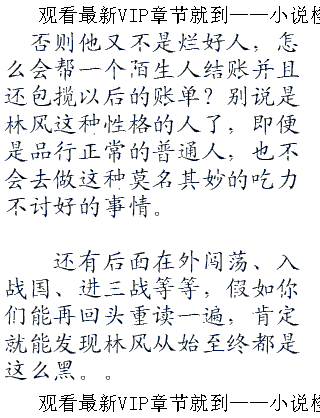 观看最新VIP章节就到——小说检
否则他又不是烂好人，怎
么会帮一个陌生人结账并且
还包揽以后的账单？别说是
林风这种性格的人了，即便
是品行正常的普通人，也不
会去做这种莫名其妙的吃力
不讨好的事情。
还有后面在外闯荡、入
战国、进三战等等，假如你
们能再回头重读一遍，肯定
就能发现林风从始至终都是
这么黑。。
观看最新VIP章节就到——小说检